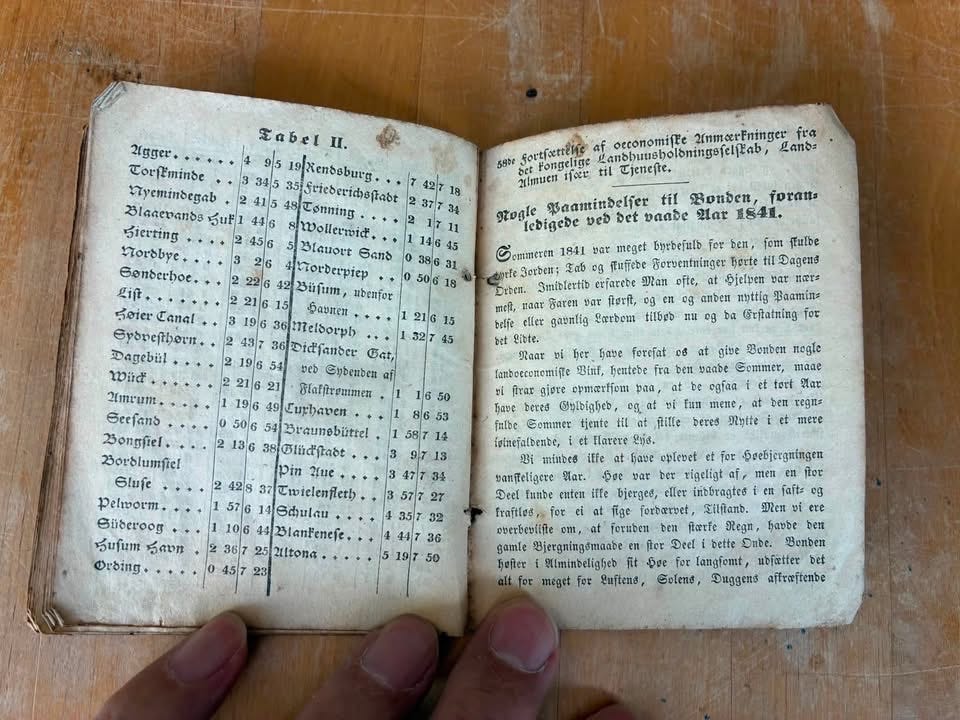 Tabel II.
Agger . . . . . . 4 9 5 19
Torskminde . . 3 34 5 35
Nyemindegab . 2 41 5 48
Blaaevands Huk 1 44 6 8
Hierting . . . . 2 45 6 5
Nordbye. . . . 3 2 6 4
Sønderhoe. . . . 2 22 6 42
List. . . . . . . 2 21 6 15
Høier Canal . . 3 19 6 36
Sydvesthørn. . . 2 43 7 36
Dagebüll . . . . 2 19 6 54
Wück . . . . . 2 21 6 21
Amrum. . . . . 1 19 6 49
Seesand . . . . 0 50 6 54
Bongsiel . . . . 2 13 6 38
Bordlumsiel
Sluse . . . . . 2 42 8 37
Pelworm. . . . 1 57 6 14
Süderoog . . . . 1 10 6 44
Husum Havn . 2 36 7 25
Ording. . . . . 0 45 7 23
Rendsburg. . . . 7 42 7 18
Friederichsstadt 2 37 7 34
Tønning. . . . . 2 1 7 11
Wollerwick. . . . 1 14 6 45
Blauort Sand 0 38 6 31
Norderpiep . . . 0 50 6 18
Büsum, udenfor
Havnen . . . . 1 21 6 15
Meldorph . . . . 1 32 7 45
Dicksander Gat,
ved Sydenden af
Flakstrømmen . 1 1 6 50
Cuxhaven . . . . 1 8 6 53
Braunsbüttel . 1 58 7 14
Glückstadt . . . 3 9 7 13
Pin Aue . . . . . 3 47 7 34
Twielenfleth . . . 3 57 7 27
Schulau . . . . . 4 35 7 32
Blankenese. . . . 4 44 7 36
Altona. . . . . . 5 19 7 50
58de Fortsættelse af oeconomiske Anmærkninger fra
det kongelige Landhuusholdningsselskab, Land-
Almuen især til Tjeneste.
Nogle Paamindelser til Bonden, foran-
ledigede ved det vaade Aar 1841.
Sommeren 1841 var meget byrdefuld for den, som skulde
dyrke Jorden; Tab og skuffede Forventninger hørte til Dagens
Orden. Imidlertid erfarede Man ofte, at Hjelpen var nær-
mest, naar Faren var størst, og en og anden nyttig Paamin-
delse eller gavnlig Lærdom tilbød nu og da Erstatning for
det Lidte.
Naar vi her have foresat os at give Bonden nogle
landoeconomiske Vink, hentede fra den vaade Sommer, maae
vi strax gjøre opmærksom paa, at de ogsaa i et tørt Aar
have deres Gyldighed, og at vi kun mene, at den regn-
fulde Sommer tjente til at stille deres Nytte i et mere
iøinefaldende, i et klarere Lys.
Vi mindes ikke at have oplevet et for Høebjergningen
vanskeligere Aar. Høe var der rigeligt af, men en stor
Deel kunde enten ikke bjerges, eller indbragtes i en saft- og
kraftløs, for ei at sige fordærvet, Tilstand. Men vi ere
overbeviiste om, at foruden den stærke Regn, havde den
gamle Bjergningsmaade en stor Deel i dette Onde. Bonden
høster i Almindelighed sit Høe for langsomt, udsætter det
alt for meget for Luftens, Solens, Duggens afkræftende